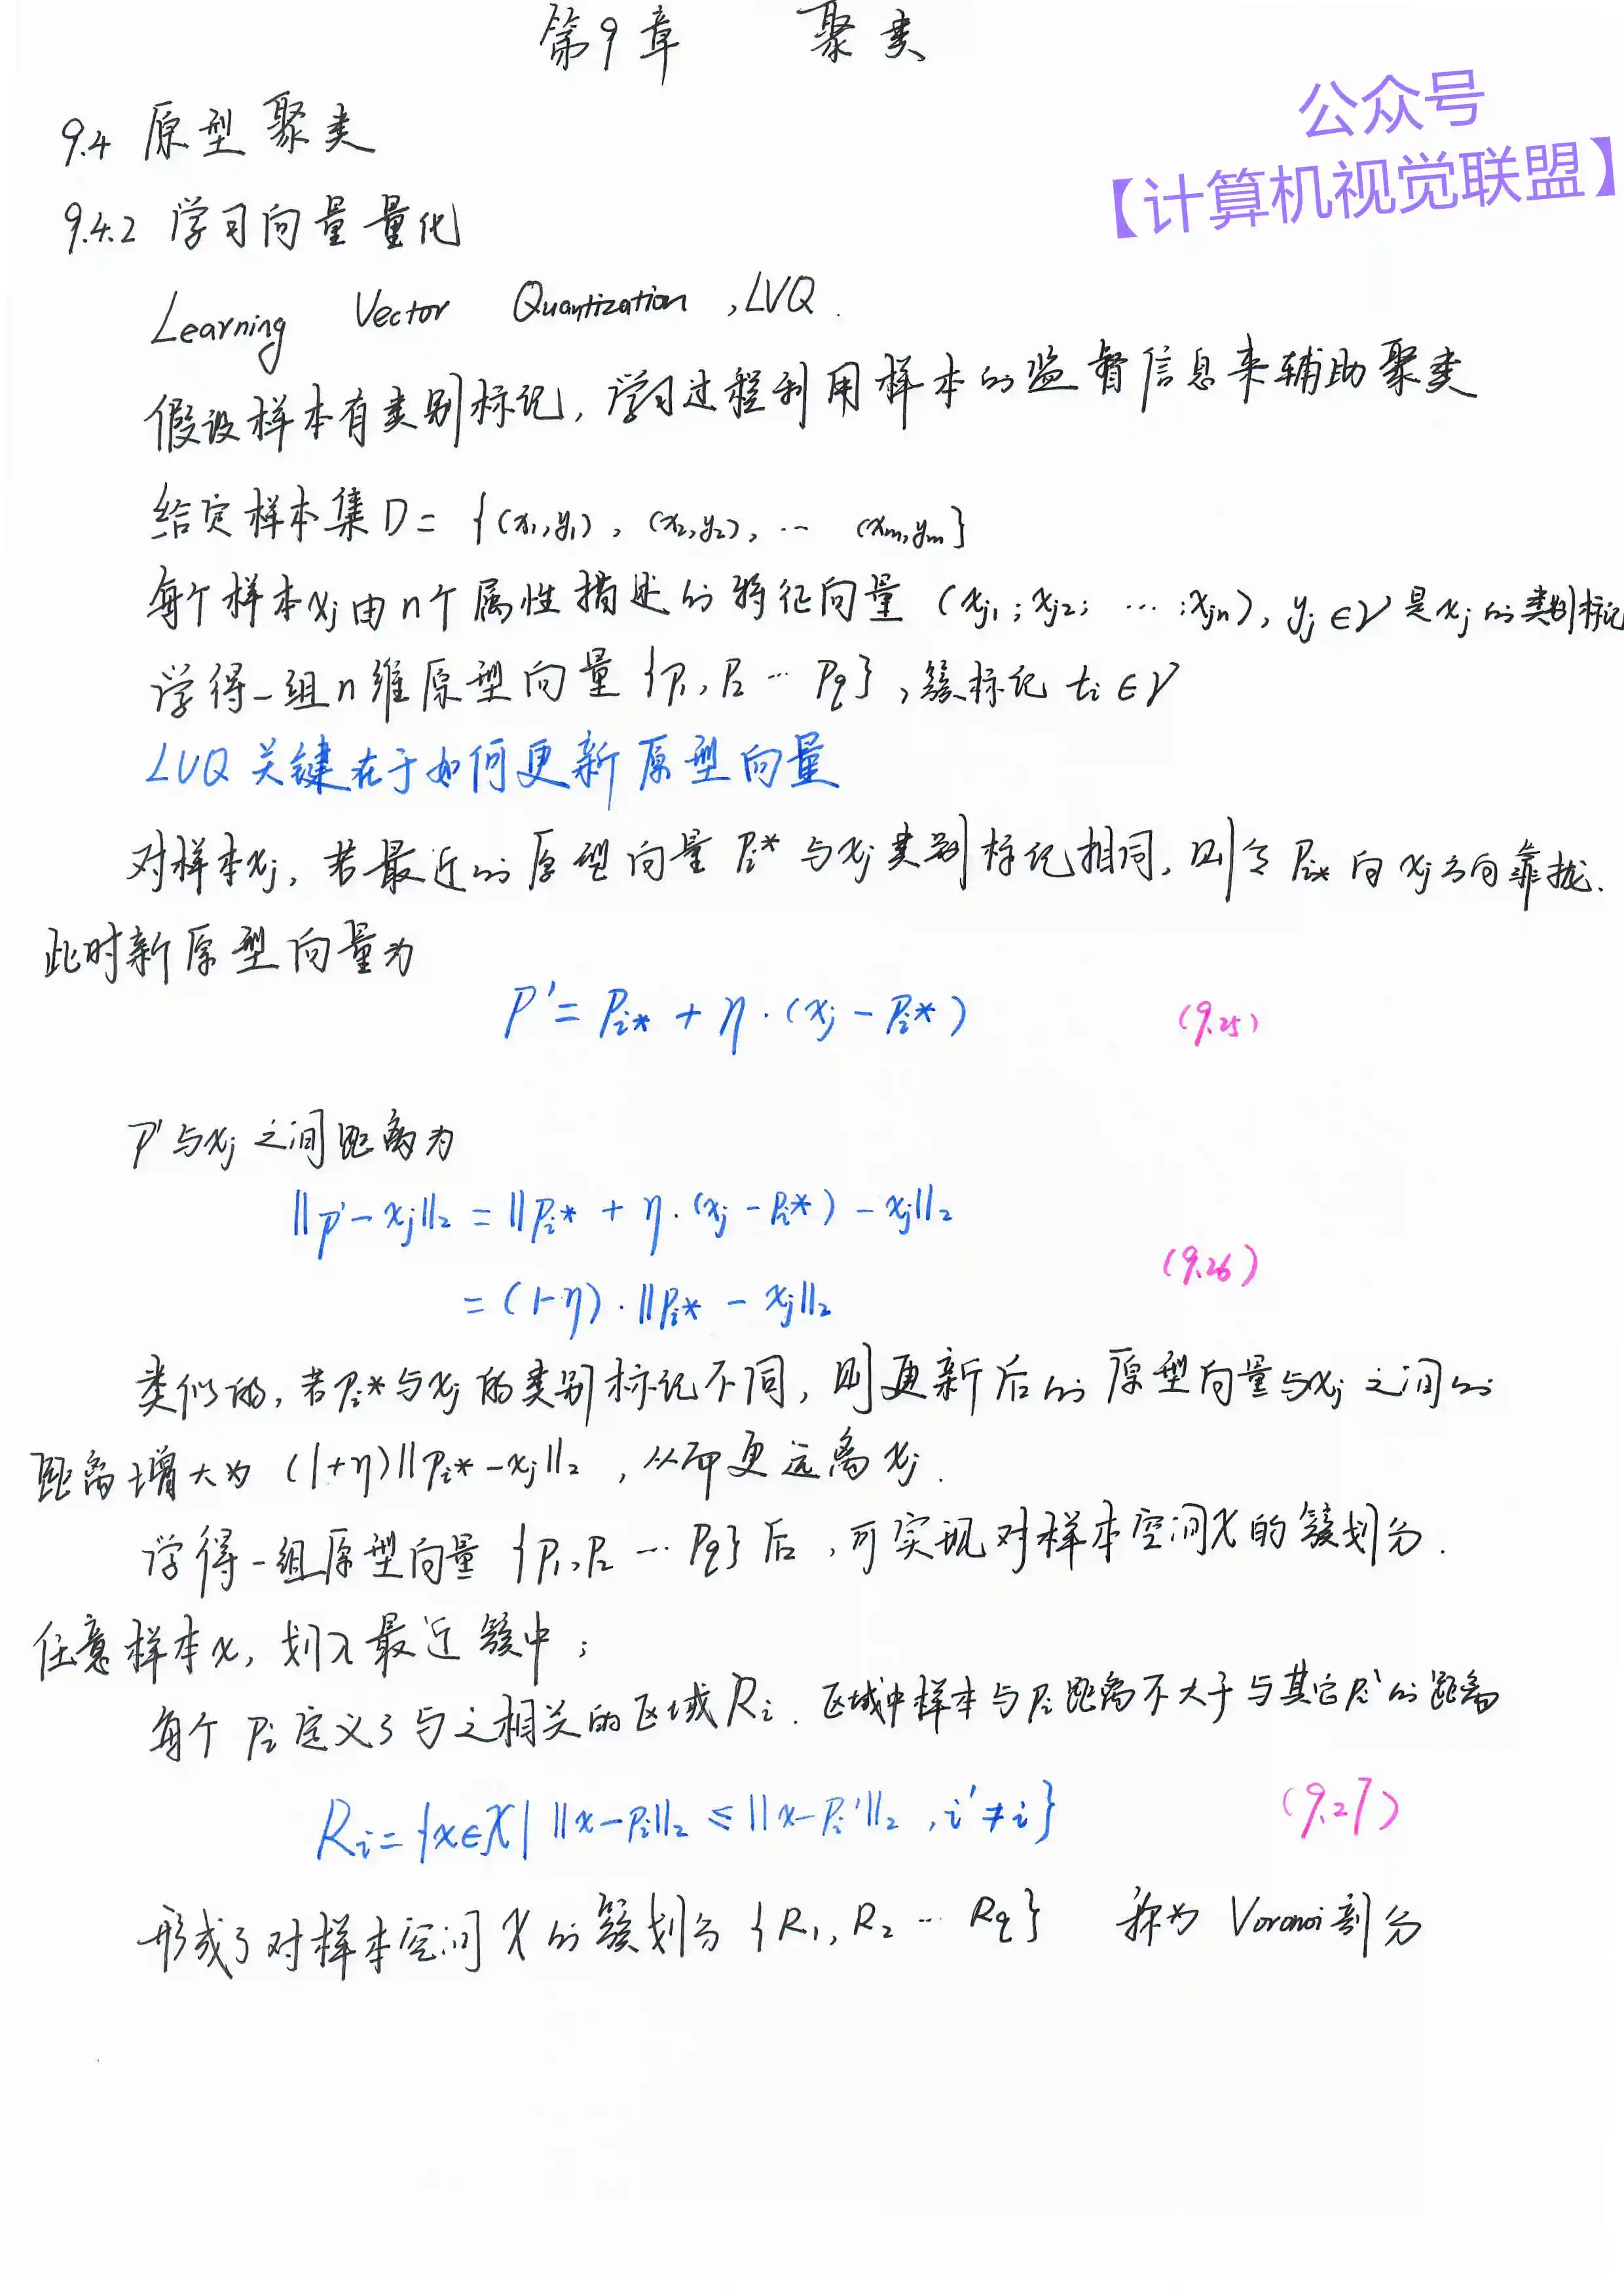 第9章 聚类
公众号
【计算机视觉联盟】
9.4 原型聚类
9.4.2 学习向量量化
Learning Vector Quantization ,LVQ.
假设样本有类别标记，学习过程利用样本的监督信息来辅助聚类
给定样本集D = {(x₁,y₁), (x₂,y₂), … (xₘ,yₘ}
每个样本xⱼ由n个属性描述的特征向量 (xⱼ₁; xⱼ₂; … ;xⱼₙ), yⱼ∈𝒴 是xⱼ的类别标记
学得一组n维原型向量 {p₁, p₂ … p_q}, 簇标记 tᵢ∈𝒴
LVQ 关键在于如何更新原型向量
对样本xⱼ, 若最近的原型向量 pᵢ* 与xⱼ类别标记相同, 则令 pᵢ* 向 xⱼ方向靠拢.
此时新原型向量为
P' = Pᵢ* + η·(xⱼ - Pᵢ*) (9.25)
p'与xⱼ之间距离为
||p' - xⱼ||₂ = ||pᵢ* + η·(xⱼ - pᵢ*) - xⱼ||₂
= (1-η)·||pᵢ* - xⱼ||₂ (9.26)
类似的, 若pᵢ*与xⱼ的类别标记不同, 则更新后的原型向量与xⱼ之间的
距离增大为 (1+η)||pᵢ* - xⱼ||₂ , 从而更远离xⱼ.
学得一组原型向量 {p₁, p₂ … p_q} 后, 可实现对样本空间χ的簇划分.
任意样本x, 划入最近簇中;
每个 pᵢ 定义了与之相关的区域Rᵢ. 区域中样本与pᵢ距离不大于与其它pᵢ'的距离
Rᵢ = {x∈χ | ||x-pᵢ||₂ ≤ ||x-pᵢ'||₂ , i'≠i} (9.27)
形成了对样本空间χ的簇划分 {R₁, R₂ … R_q} 称为 Voronoi剖分